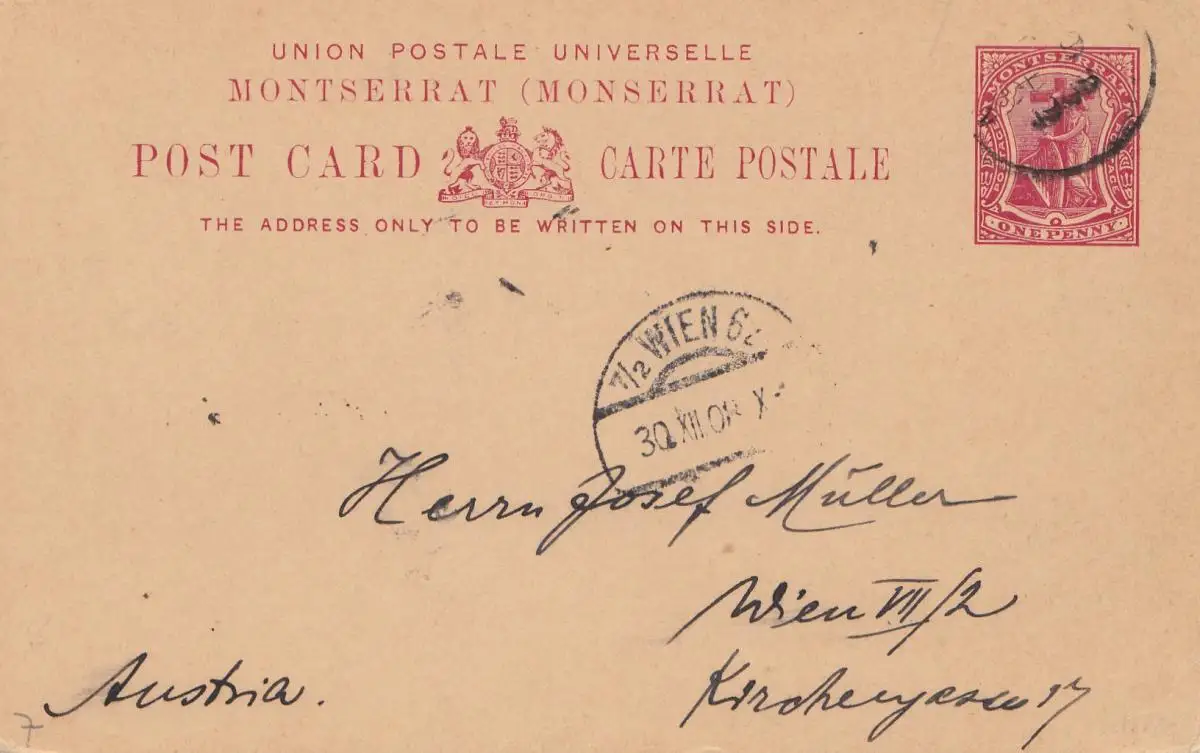 UNION POSTALE UNIVERSELLE
MONTSERRAT (MONSERRAT)
POST CARD CARTE POSTALE
THE ADDRESS ONLY TO BE WRITTEN ON THIS SIDE.
MONTSERRAT
POSTAGE
ONE PENNY
7/2 WIEN
30 XII
Herrn Josef Müller
Wien VII/2
Kirchengasse 17
Austria.
7